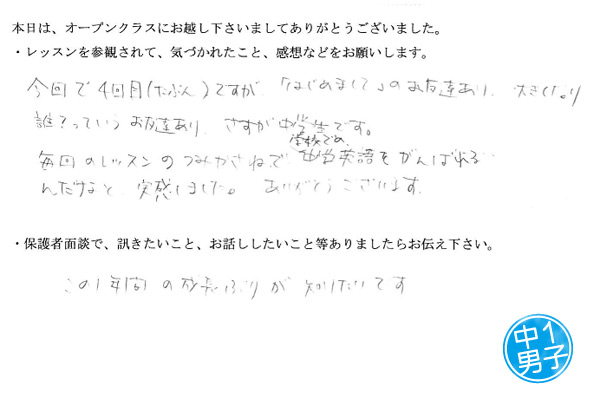 本日は、オープンクラスにお越し下さいましてありがとうございました。
・レッスンを参観されて、気づかれたこと、感想などをお願いします。
今回で4回目(たぶん)ですが、「はじめまして」のお友達あり、大きくなり
誰?っていうお友達あり、さすが中学生です。
学校でめ
毎回のレッスンのつみかさねで 英語をがんばれる
んだなと、実感しました。ありがとうございます。
・保護者面談で、訊きたいこと、お話ししたいこと等ありましたらお伝え下さい。
この1年間の成長ぶりが知りたいです
中1
男子